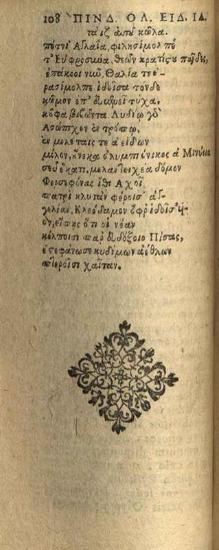 108 ΠΙΝΔ. ΟΛ. ΕΙΔ. ΙΔ.
πότνι' Ἀγλαΐα, φιλησίμολπέ
τ' Εὐφροσύνα, θεῶν κρατίστου παῖδες,
ἐπάκοοι νῦν, Θαλία τε ἐ-
ρασίμολπε, ἰδοῖσα τόνδε
κῶμον ἐπ' εὐμενεῖ τύχᾳ
κοῦφα βιβῶντα. Λυδίῳ γὸ
Ἀσώπιχον ἐν τρόπῳ,
ἐν μελέταις τε ἀείδων
μόλον, οὕνεκα ὀλυμπιόνικος ἁ Μινύεια
σεῦ ἕκατι. μελαντειχέα δόμον
Φερσεφόνας ἴθι Ἀχοῖ
πατρὶ κλυτὰν φέροισ' ἀγ-
γελίαν, Κλεόδαμον ὄφρ' ἰδοῖσ' υἱ-
ὸν, εἴπῃς ὅτι οἱ νέαν
κόλποισι παρ' εὐδόξοιο Πίσας,
ἐστεφάνωσε κυδίμων ἀέθλων
πτεροῖσι χαίταν.